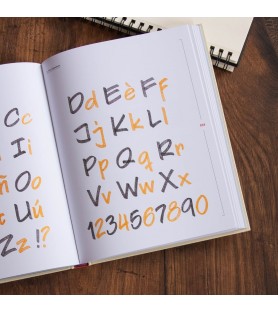 C c
I i
ñ O o
U ú
z z !?
D d E è F f
J j K k L l
P p Q q R r
V v W w X x
1234567890